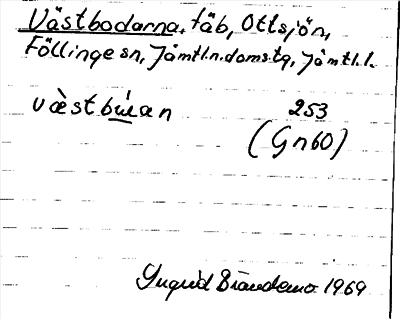 Västbodarna, fäb, Ottsjön,
Föllinge sn, Jämtl.n.doms.tg, Jämtl.l.
västbúan 253
(Gn60)
Ingrid Brändemo 1969